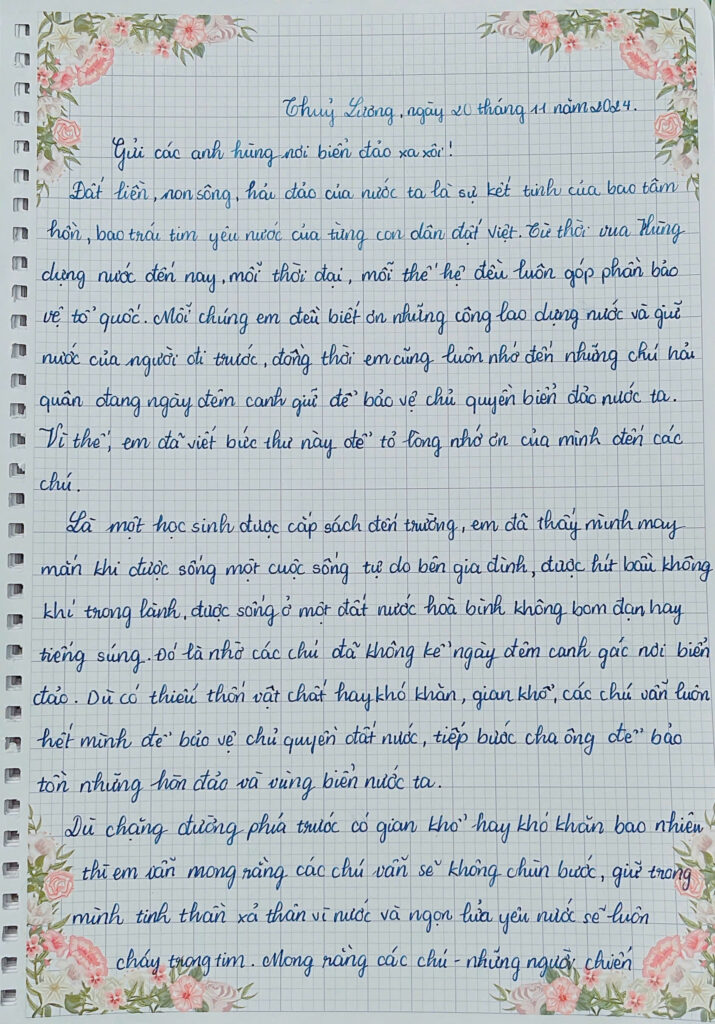 Thuỷ Lương, ngày 20 tháng 11 năm 2024.
Gửi các anh hùng nơi biển đảo xa xôi!
Đất liền, non sông, hải đảo của nước ta là sự kết tinh của bao tâm
hồn, bao trái tim yêu nước của từng con dân đất Việt. Từ thời vua Hùng
dựng nước đến nay, mỗi thời đại, mỗi thế hệ đều luôn góp phần bảo
vệ tổ quốc. Mỗi chúng em đều biết ơn những công lao dựng nước và giữ
nước của người đi trước, đồng thời em cũng luôn nhớ đến những chú hải
quân đang ngày đêm canh giữ để bảo vệ chủ quyền biển đảo nước ta.
Vì thế, em đã viết bức thư này để tỏ lòng nhớ ơn của mình đến các
chú.
Là một học sinh được cắp sách đến trường, em đã thấy mình may
mắn khi được sống một cuộc sống tự do bên gia đình, được hít bầu không
khí trong lành, được sống ở một đất nước hoà bình không bom đạn hay
tiếng súng. Đó là nhờ các chú đã không kể ngày đêm canh gác nơi biển
đảo. Dù có thiếu thốn vật chất hay khó khăn, gian khổ, các chú vẫn luôn
hết mình để bảo vệ chủ quyền đất nước, tiếp bước cha ông để bảo
tồn những hòn đảo và vùng biển nước ta.
Dù chặng đường phía trước có gian khổ hay khó khăn bao nhiêu
thì em vẫn mong rằng các chú vẫn sẽ không chùn bước, giữ trong
mình tinh thần xả thân vì nước và ngọn lửa yêu nước sẽ luôn
cháy trong tim. Mong rằng các chú - những người chiến